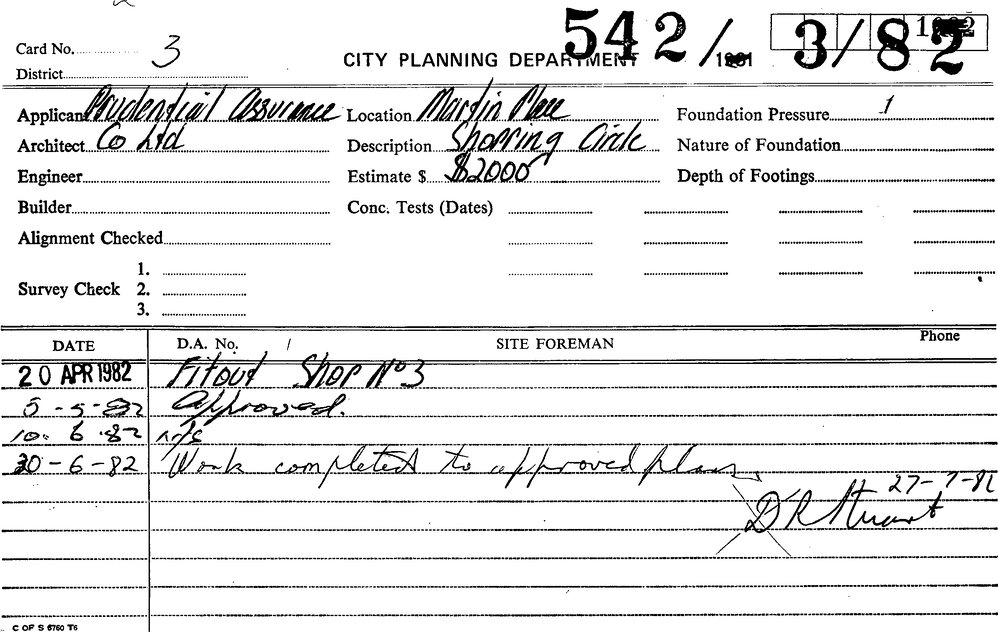 Card No. 3
District
CITY PLANNING DEPARTMENT 542/3/82
Applicant Prudential Assurance Location Martin Place Foundation Pressure
Architect Co Ltd Description Shopping Circle Nature of Foundation
Engineer Estimate $ $2000 Depth of Footings
Builder Conc. Tests (Dates)
Alignment Checked
1.
Survey Check 2.
3.
DATE D.A. No. SITE FOREMAN Phone
20 APR 1982 Fitout Shop No 3
5-5-82 Approved.
10.6.82 n/s
30-6-82 Work completed to approved plans
27-7-82
D R Stuart
C OF S 6760 T6